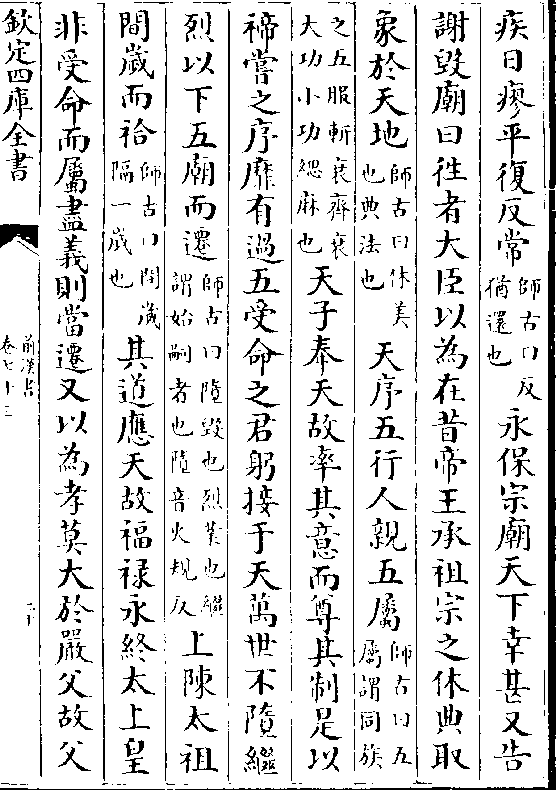 疾日瘳平復反常師古曰反猶還也永保宗廟天下幸甚又告
謝毀廟曰徃者大臣以為在昔帝王承祖宗之休典取
象於天地師古曰休美也典法也天序五行人親五屬師古曰五屬謂同族
之五服斬衰齊衰大功小功緦麻也天子奉天故率其意而尊其制是以
禘嘗之序靡有過五受命之君躬接于天萬世不隳繼
烈以下五廟而遷師古曰隳毀也烈業也繼謂始嗣者也隳音火規反上陳太祖
間歲而祫師古曰間歲隔一歲也其道應天故福禄永終太上皇
非受命而屬盡義則當遷又以為孝莫大於嚴父故父
欽定四庫全書
前漢書
卷七十三
二十